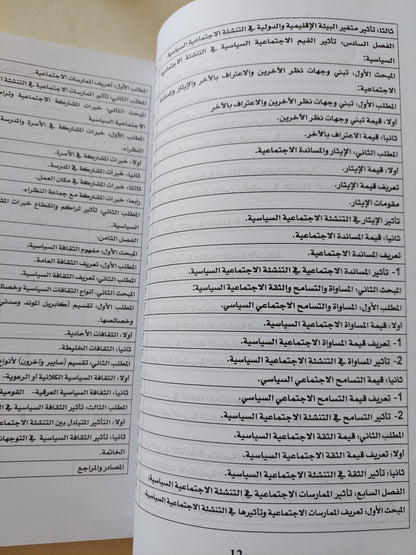 ثالثا: تأثير متغير البيئة الإقليمية والدولية في التنشئة السياسية
الفصل السادس: تأثير القيم الاجتماعية السياسية في التنشئة الاجتماعية
السياسية:
المبحث الأول: تبني وجهات نظر الآخرين والاعتراف بالآخر والإيثار والمساندة
الاجتماعية:
المطلب الأول: تبني وجهات نظر الآخرين والاعتراف بالآخر
اولا: قيمة تبني وجهات نظر الآخرين.
ثانيا: قيمة الاعتراف بالآخر.
المطلب الثاني: الإيثار والمساندة الاجتماعية.
اولا: قيمة الإيثار.
تعريف قيمة الإيثار
مقومات الإيثار
تأثير الإيثار في التنشئة الاجتماعية السياسية.
ثانيا: قيمة المساندة الاجتماعية.
تعريف المساندة الاجتماعية.
1- تأثير المساندة الاجتماعية في التنشئة الاجتماعية السياسية.
المبحث الثاني: المساواة والتسامح والثقة الاجتماعية السياسية:
المطلب الأول: المساواة والتسامح الاجتماعي السياسي.
اولا: قيمة المساواة الاجتماعية السياسية.
1- تعريف قيمة المساواة الاجتماعية السياسية.
2- تأثير المساواة في التنشئة الاجتماعية السياسية.
ثانيا: قيمة التسامح الاجتماعي السياسي.
1- تعريف قيمة التسامح الاجتماعي السياسي.
2- تأثير التسامح في التنشئة الاجتماعية السياسية.
المطلب الثاني: قيمة الثقة الاجتماعية السياسية.
اولا: تعريف قيمة الثقة الاجتماعية السياسية.
ثانيا: تأثير الثقة في التنشئة الاجتماعية السياسية.
الفصل السابع: تأثير الممارسات الاجتماعية في التنشئة الاجتماعية السياسية:
المبحث الأول: تعريف الممارسات الاجتماعية وتأثيرها في التنشئة الاجتماعية السياسية.
12
المطلب الأول: تعريف الممارسات الاجتماعية.
المطلب الثاني: تأثير الممارسات الاجتماعية في التنشئة
المبحث الثاني: خبرات المشاركة الاجتماعية
الاجتماعية السياسية
المطلب الأول: خبرات المشاركة في الأسرة والمدرسة
النظراء.
اولا: خبرات المشاركة في الأسرة.
ثانيا: خبرات المشاركة في المدرسة.
ثالثا: خبرات المشاركة في مكان العمل.
رابعا: خبرات المشاركة مع جماعة النظراء.
المطلب الثاني: تأثير تراكم وانقطاع خبرات
السياسية.
الفصل الثامن:
المبحث الأول: مفهوم الثقافة السياسية:
المطلب الأول: تعريف الثقافة العامة.
المطلب الثاني: تعريف الثقافة السياسية.
المبحث الثاني: أنواع الثقافات السياسية
المطلب الأول: تقسيم (كابريل الموند وسدني
وخصائصها.
اولا: الثقافات الأحادية.
ثانيا: الثقافات الخليطة.
المطلب الثاني: تقسيم (سايبر وآخرون) لأنواع
اولا: الثقافة السياسية الكلانية أو الرعوية-
ثانيا: الثقافة السياسية العرقية- القومية
المطلب الثالث: تأثير الثقافة السياسية في
اولا: التأثير المتبادل بين التنشئة الاجتماعية
ثانيا: تأثير الثقافة السياسية في التوجهات
الخاتمة.
المصادر والمراجع